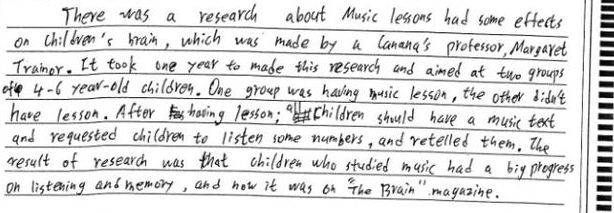 There was a research about Music lessons had some effects
on Children's brain, which was made by a Canana's professor, Margaret
Trainor. It took one year to made this research and aimed at two groups
of 4-6 year-old children. One group was having music lesson, the other didn't
have lesson. After having lesson; all children should have a music text
and requested children to listen some numbers, and retelled them. The
result of research was that children who studied music had a big progress
on listening and memory, and now it was on "The Brain" magazine.